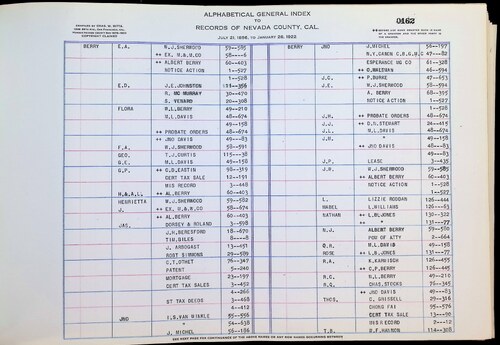 ALPHABETICAL GENERAL INDEX
TO
RECORDS OF NEVADA COUNTY, CAL.
JULY 21, 1856, TO JANUARY 28, 1922
0162
COPYRIGHT CLAIMED
BERRY E.A. W.J.SHERWOOD 59--585
++ EX. M.& M.CO 58---6
++ ALBERT BERRY 60--403
NOTICE ACTION 1--527
" 1--528
E.D. J.E.JOHNSTON
R. MC MURRAY 30--470
S. VENARD 20--308
FLORA W.L.BERRY 49--210
M.L.DAVIS 48--674
" 49--158
++ PROBATE ORDERS 48--674
++ JNO DAVIS 49--83
F.W. W.J.SHERWOOD 58--591
GEO. T.J.CURTIS 115--38
G.E. M.L.DAVIS 49--158
G.P. ++ C.D.EASTIN 98--319
CERT TAX SALE 12--191
MIS RECORD 3--448
H.& A.L. ++ AL.BERRY 60--403
HENRIETTA W.J.SHERWOOD 59--582
J. ++ EX. M.& M.CO 58--674
++ AL.BERRY 60--403
JAS. DORSEY & ROLAND 3--598
J.H.BERESFORD 18--670
TIM.GILES 8---8
J. ARBOGAST 13--451
ROBT SIMMONS 29--509
C.T.OTHET 76--347
PATENT 2--240
MORTGAGE 23--197
CERT TAX SALES 3--452
" 4--266
ST TAX DEEDS 3--468
" 4--412
JNO I.B.VAN WINKLE 85--556
" 54--538
J. MICHEL 56--196
BERRY JNO J.MICHEL 56--197
N.Y.CANON C.B.G.M.C 47--82
ESPERANCE MG CO 61--328
++ O.WALTMAN 46--594
J.C. ++ P.BURKE 47--653
J.E. W.J.SHERWOOD 59--594
A. BERRY 68--195
NOTICE ACTION 1--527
" 1--528
J.H. ++ PROBATE ORDERS 48--674
J.J. ++ D.N.STEWART 24--415
J.L. M.L.DAVIS 48--674
J.M. " 49--158
++ JNO DAVIS 48--83
" 49--83
J.P. LEASE 3--435
J.R. W.J.SHERWOOD 59--589
++ ALBERT BERRY 60--403
NOTICE ACTION 1--528
" 1--527
L. LIZZIE RODDAN 126--444
MABEL L.WILLIAMS 126--63
NATHAN ++ L.B.JONES 130--322
++ " 131--77
N.J. ALBERT BERRY 59--508
POW OF ATTY 2--664
O.R. M.L.DAVIS 49--158
ROSE ++ L.B.JONES 131--77
R.A. K.KARNISCH 126--455
++ C.P.BERRY 126--445
R.C. W.L.BERRY 49--210
R.G. CHAS.STOCKS 76--345
++ JNO DAVIS 49--83
THOS. C. GRISSELL 29--316
CHONG FAI 95--576
CERT TAX SALE 13--50
MIS RECORD 2--412
T.B. S.F.HANSON 114--308
SEE NEXT PAGE FOR CONTINUANCE OF THE ABOVE NAMES OR ANY NEW NAMES OCCURRING BETWEEN